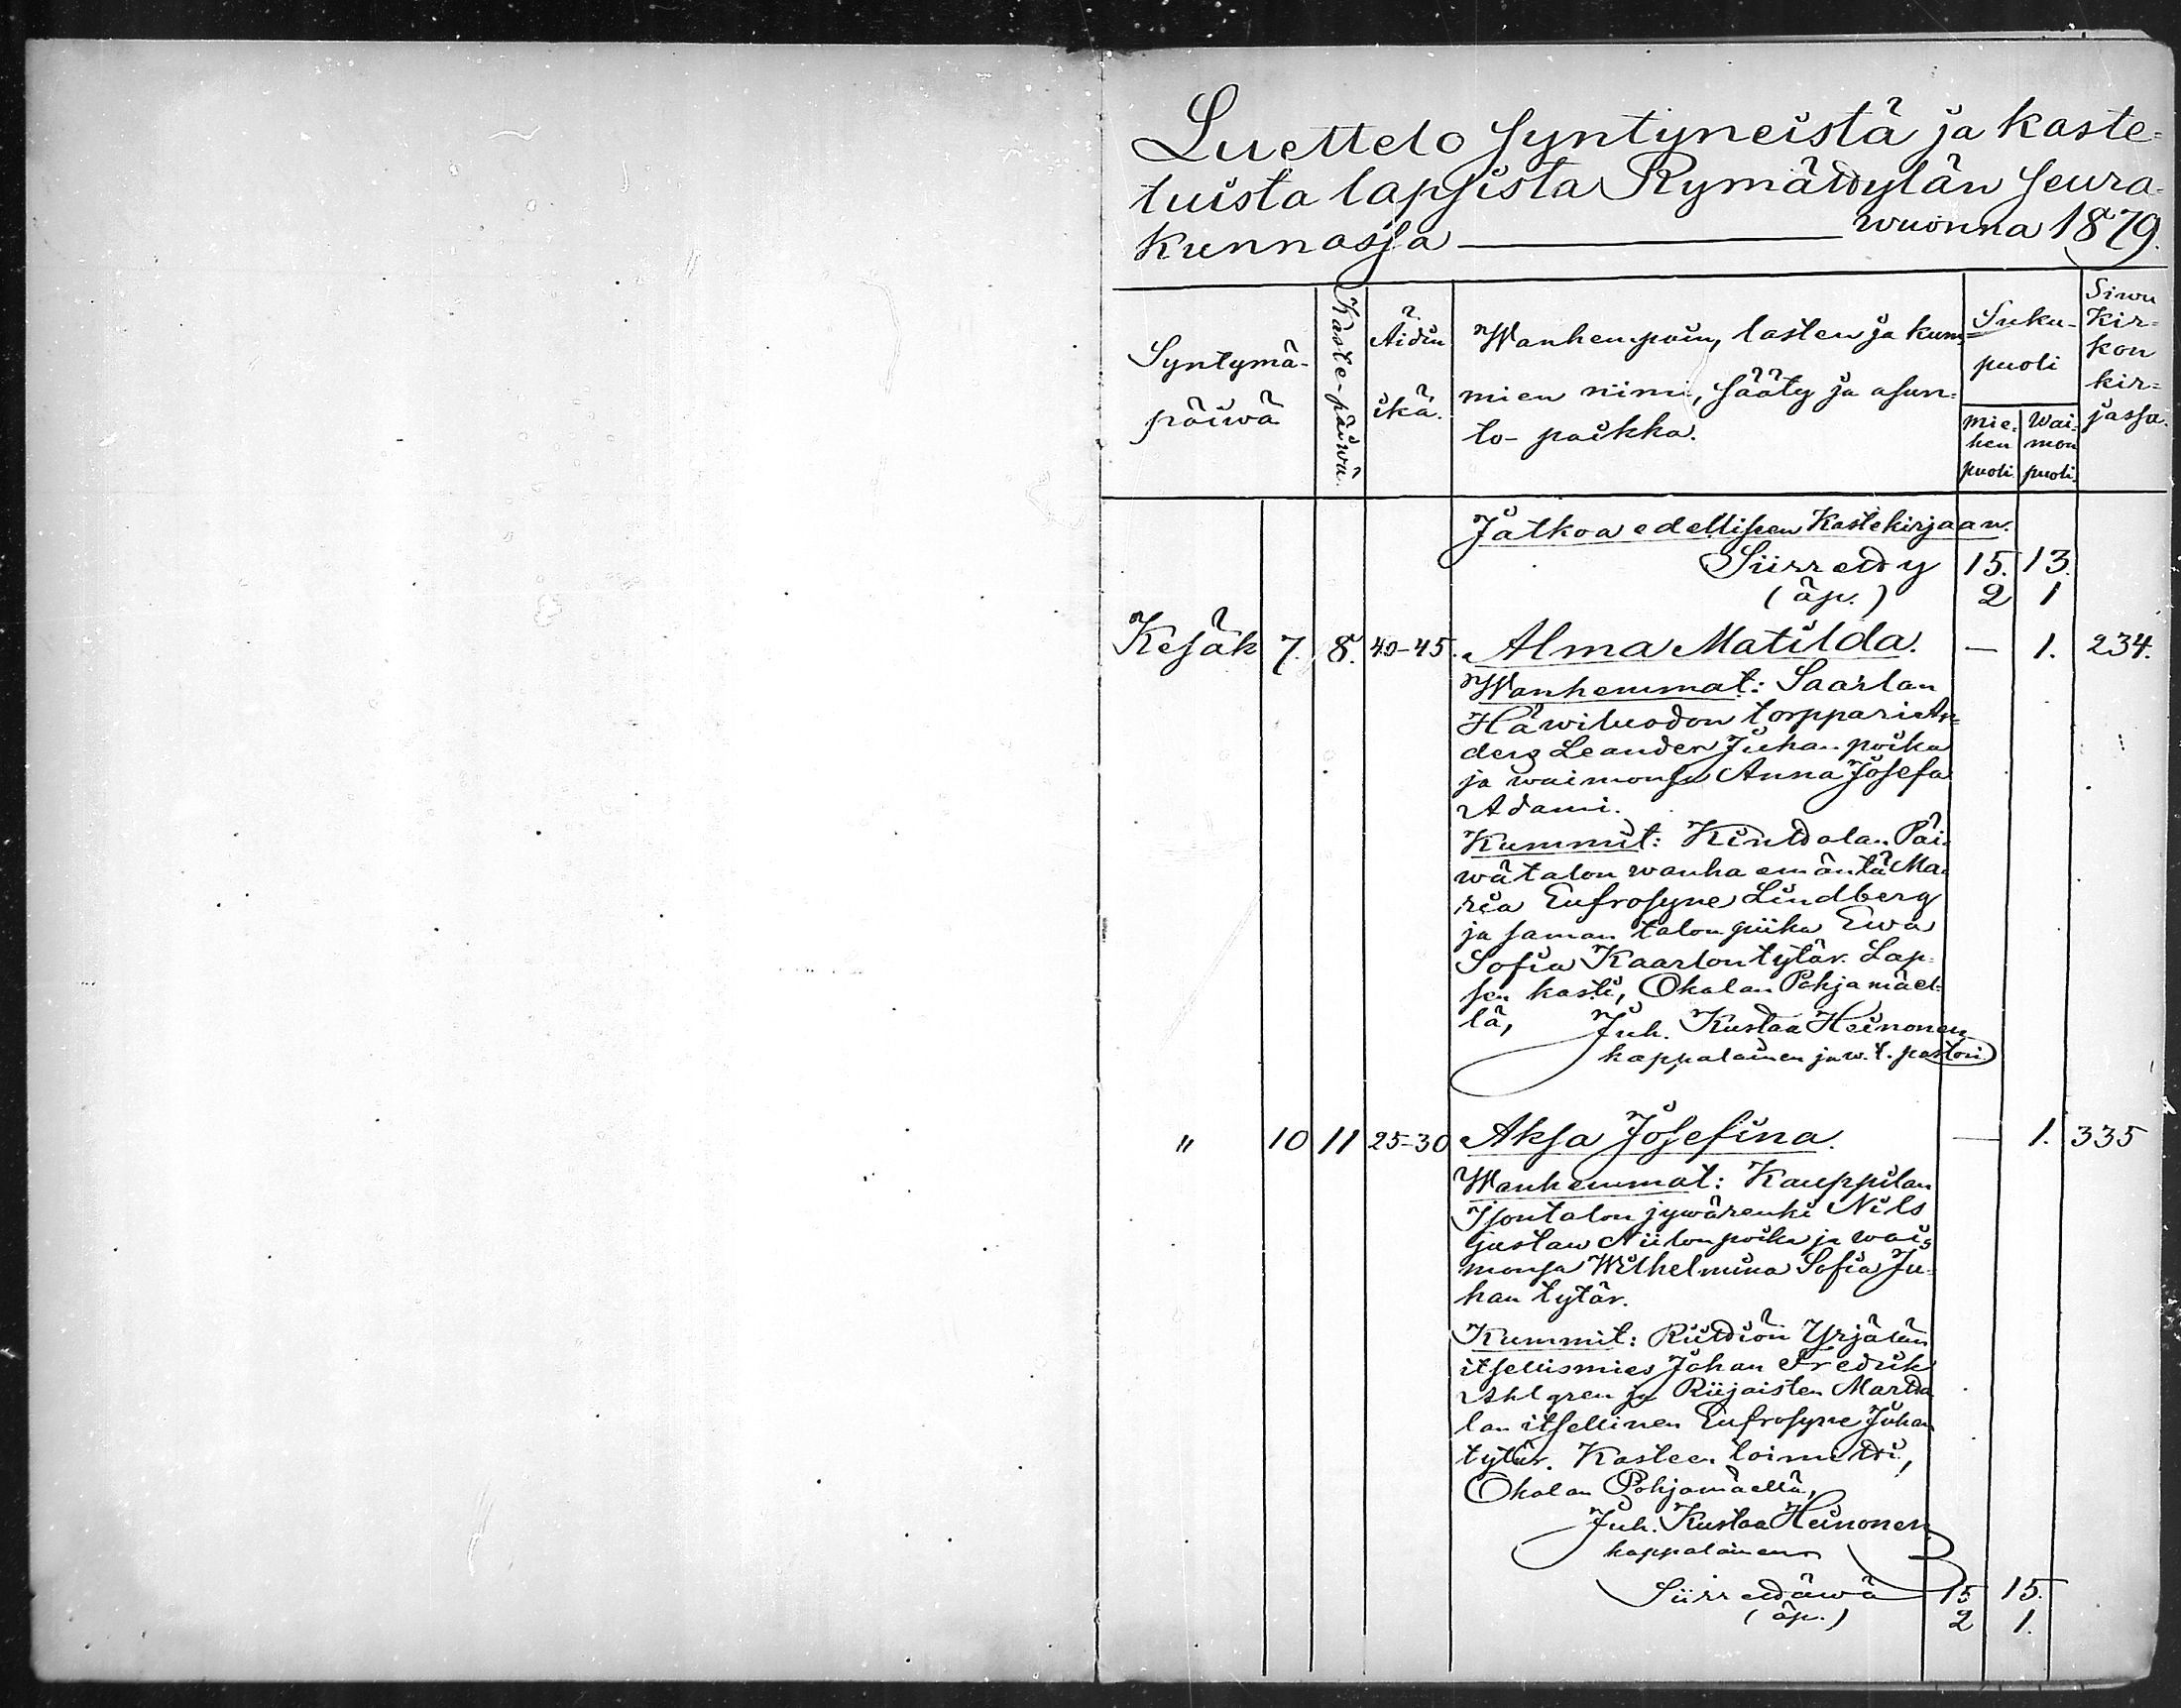 Luettelo syntyneistä ja kaste-
tuista lapsista Rymättylän seura-
kunnassa ———— wuonna 1879.
Syntymä-
päiwä
Kaste-päiwä.
Äidin
ikä.
Wanhempain, lasten ja kum-
mien nimi, sääty ja asun-
to-paikka.
Suku-
puoli
mie-
hen
puoli.
Wai-
mon
puoli.
Siwu
kir-
kon
kir-
jassa.
Jatkoa edellisen Kastekirjaan.
Siirretty 15. 13.
(äp.) 2 1
Kesäk 7. 8. 40-45. Alma Matilda. — 1. 234.
Wanhemmat: Saarlan
Häwiluodon torppari An-
ders Leander Juhan poika
ja waimonsa Anna Josefa
Adami.
Kummit: Kinttalan Päi-
wätalon wanha emäntä Ma-
ria Eufrosyne Lindberg
ja saman talon piika Ewa
Sofia Kaarlontytär. Lap-
sen kasti, Okalan Pohjamäel-
lä, Juh. Kustaa Heinonen
kappalainen ja w. t. pastori.
" 10 11 25-30 Aksa Josefina. — 1. 335
Wanhemmat: Kauppilan
Isontalon jywärenki Nils
Gustaw Niilonpoika ja wai-
monsa Wilhelmina Sofia Ju-
han tytär.
Kummit: Riittiön Yrjälän
itsellismies Johan Fredrik
Ahlgren ja Riijaisten Martta-
lan itsellinen Eufrosyne Juhan
tytär. Kasteen toimitti,
Okalan Pohjamäellä,
Juh. Kustaa Heinonen
kappalainen
Siirrettäwä 15 15.
(äp.) 2 1.